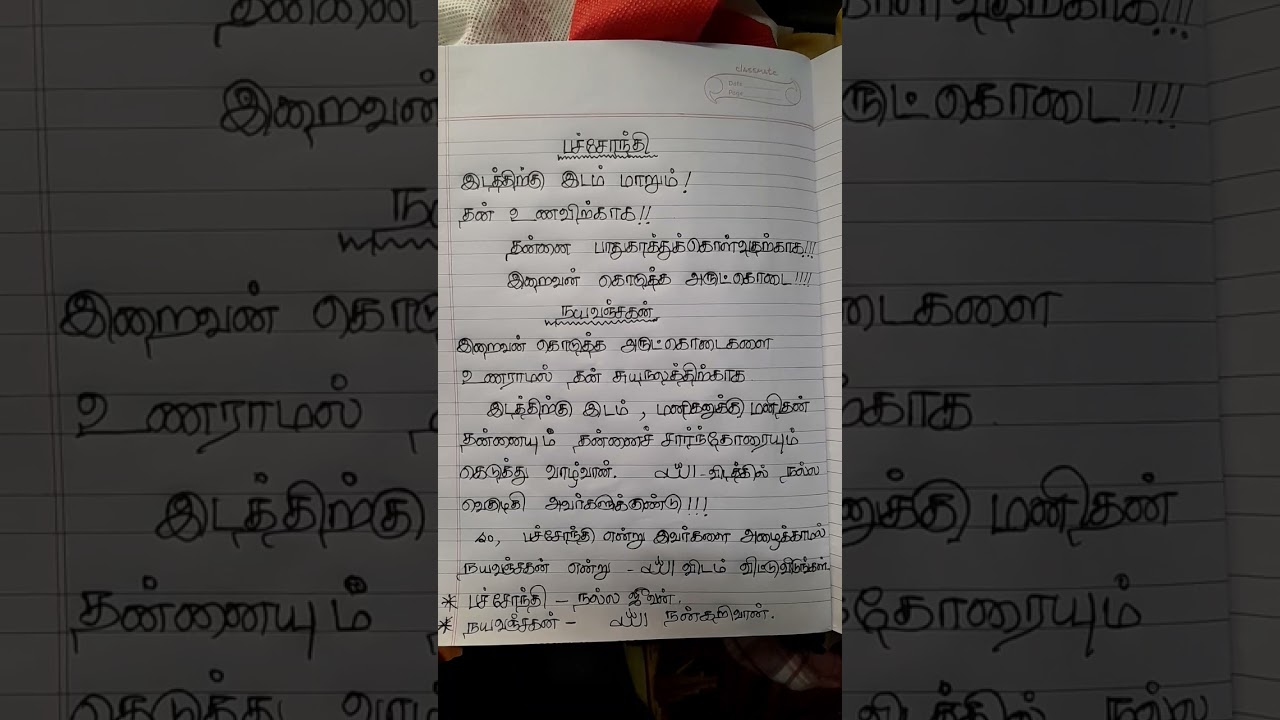 classmate
Date
Page
பச்சோந்தி
இடத்திற்கு இடம் மாறும்!
தன் உணவிற்காக!!
தன்னை பாதுகாத்துக்கொள்வதற்காக!!!
இறைவன் கொடுத்த அருட்கொடை!!!!
நயவஞ்சகன்
இறைவன் கொடுத்த அருட்கொடைகளை
உணராமல் தன் சுயநலத்திற்காக
இடத்திற்கு இடம், மனிதனுக்கு மனிதன்
தன்னையும் தன்னைச் சார்ந்தோரையும்
கெடுத்து வாழ்வான். الله-விடத்தில் நல்ல
வெகுமதி அவர்களுக்குண்டு!!!
பச்சோந்தி என்று இவர்களை அழைக்காமல்
நயவஞ்சகன் என்று - الله விடம் விட்டுவிடுங்கள்.
* பச்சோந்தி - நல்ல ஜீவன்.
* நயவஞ்சகன் - الله நன்கறிவான்.